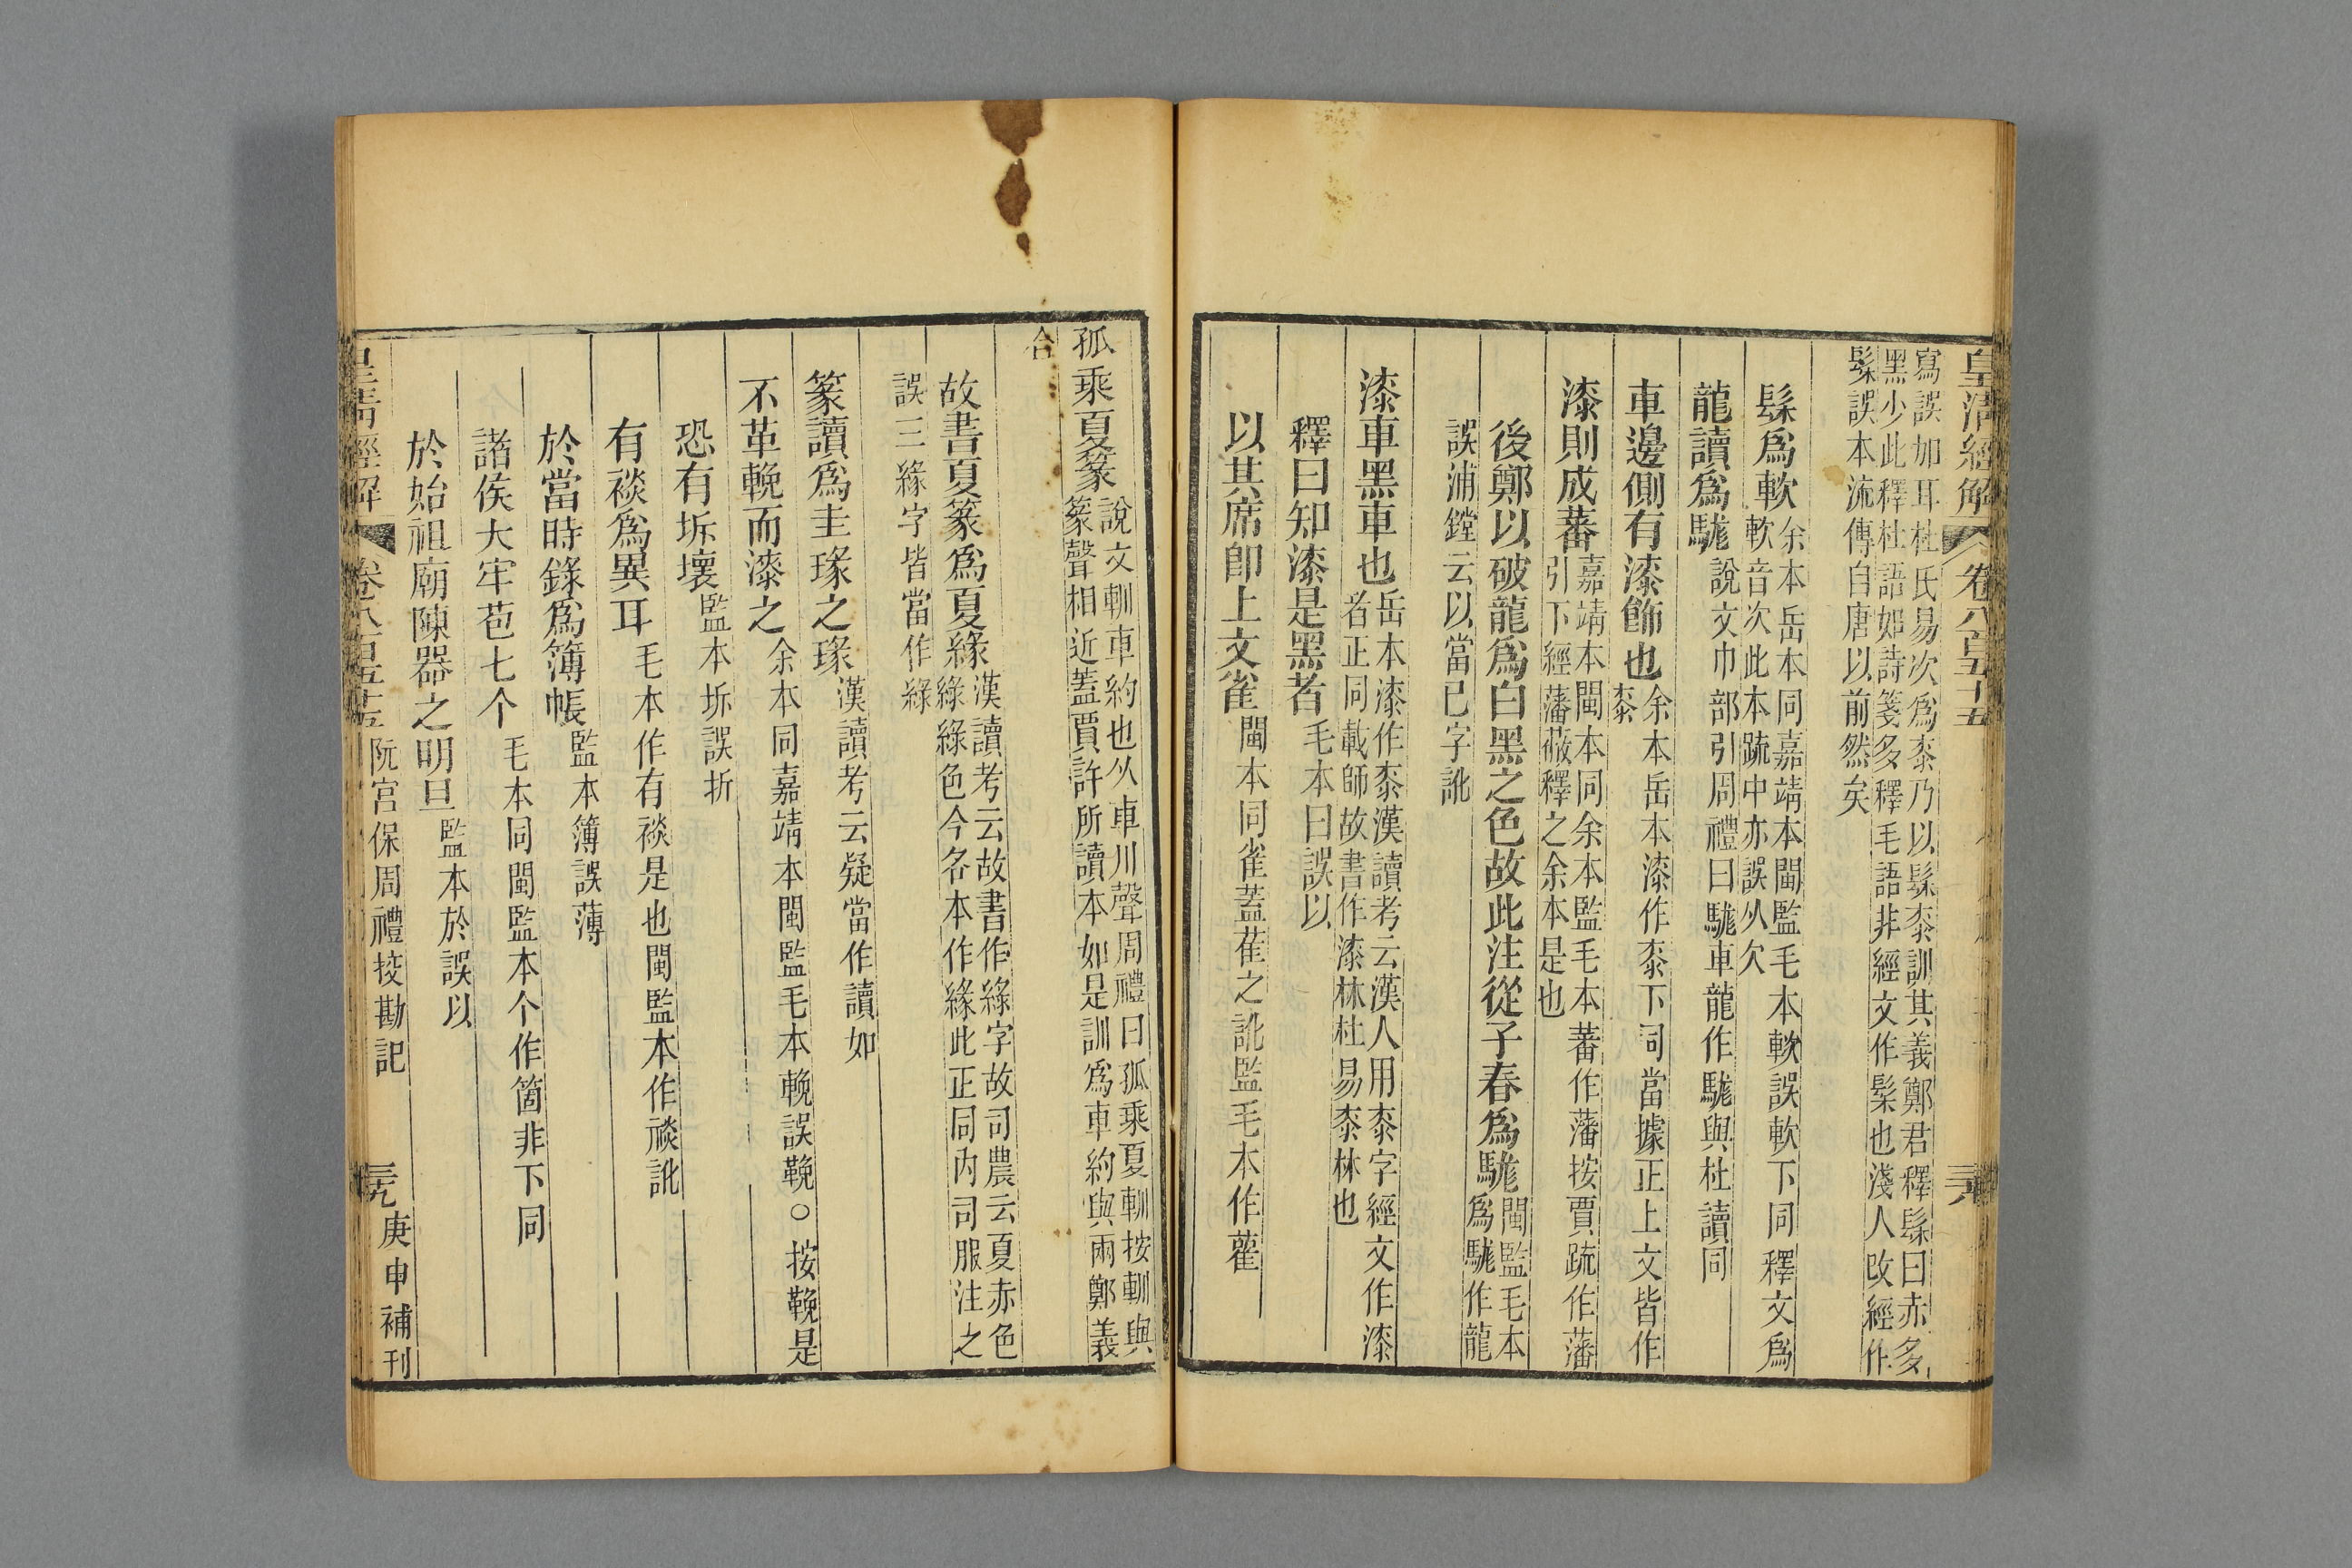 皇清經解 卷八百五十五 三六
寫誤加耳杜氏易次爲桼乃以髹桼訓其義鄭君釋髹曰赤多
黑少此釋杜語如詩箋多釋毛語非經文作髤也淺人改經作
髹誤本流傳自唐以前然矣
髹爲軟余本岳本同嘉靖本閩監毛本軟誤軟下同釋文爲
軟音次此本䟽中亦誤从欠
龍讀爲駹說文巾部引周禮曰駹車龍作駹與杜讀同
車邊側有漆飾也余本岳本漆作桼下同當據正上文皆作
桼
漆則成蕃嘉靖本閩本同余本監毛本蕃作藩按賈䟽作藩
引下經藩蔽釋之余本是也
後鄭以破龍爲白黑之色故此注從子春爲駹閩監毛本
爲駹作龍
誤浦鏜云以當已字訛
漆車黑車也岳本漆作桼漢讀考云漢人用桼字經文作漆
者正同載師故書作漆林杜易桼林也
釋曰知漆是黑者毛本曰誤以
以其席卽上文雀閩本同雀蓋萑之訛監毛本作雚
孤乘夏篆說文軐車約也从車川聲周禮曰孤乘夏軐按軐與
篆聲相近蓋賈許所讀本如是訓爲車約與兩鄭義
合
故書夏篆爲夏緣漢讀考云故書作緣字故司農云夏赤色
綠綠色今各本作緣此正同内司服注之
誤三緣字皆當作綠
篆讀爲圭瑑之瑑漢讀考云疑當作讀如
不革輓而漆之余本同嘉靖本閩監毛本輓誤鞔○按鞔是
恐有坼壞監本坼誤折
有祾爲異耳毛本作有祾是也閩監本作祾訛
於當時錄爲簿帳監本簿誤薄
諸侯大牢苞七个毛本同閩監本个作箇非下同
於始祖廟陳器之明旦監本於誤以
皇清經解 卷八百五十五 阮宮保周禮挍勘記 三九 庚申補刊